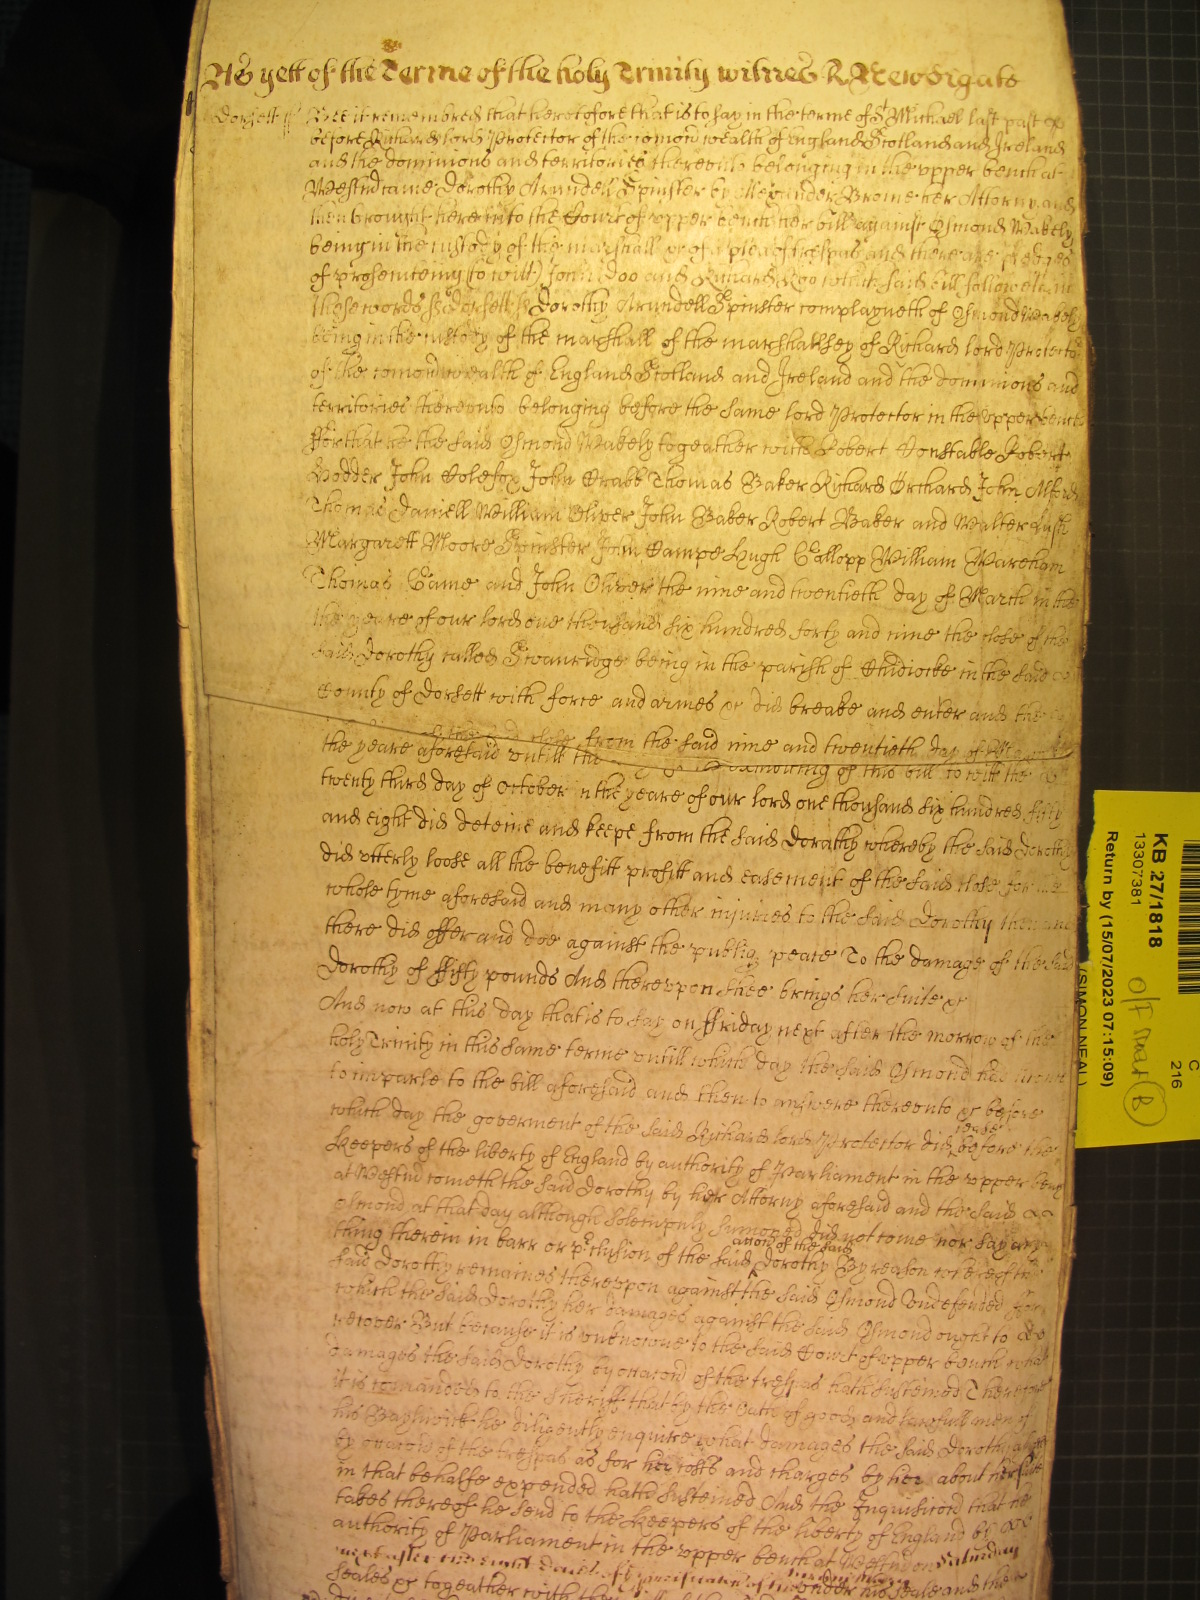 As yett of the Terme of the holy Trinity witnes R Newdigate
Dorsett ss Bee it remembred that heretofore that is to say in the terme of St Michael last past
before Richard lord Protector of the comon wealth of England Scotland and Ireland
and the dominions and territories thereunto belonging in the upper bench at
Westm came Dorothy Arundell Spinster by Alexander Brome her Attorny and
then brought here into the Court of upper bench her bill against Osmond Wakely
being in the custody of the marshall &c of a plea of trespas and there are pledges
of prosecuteing (to witt) John Doo and Richard Roo which said bill followeth in
these words ss Dorsett ss Dorothy Arundell Spinster complayneth of Osmond Wakely
being in the custody of the marshall of the marshallsey of Richard lord Protector
of the comon wealth of England Scotland and Ireland and the dominions and
territories thereunto belonging before the same lord Protector in the upper bench
ffor that he the said Osmond Wakely togeather with Robert Constable Robert
Hodder John Colefox John Crabb Thomas Baker Richard Orchard John Alford
Thomas Daniell William Oliver John Baker Robert Baker and Walter
Margarett Moore Spinster John Campe Hugh Gallopp William Wareham
Thomas Game and John Oliver the nine and twentieth day of March in the
the yeare of our lord one thousand six hundred forty and nine the close of the
said Dorothy called Swanridge being in the parish of in the said
County of Dorsett with force and armes &c did breake and enter and the
said close from the said nine and twentieth day of
the yeare aforesaid untill the exhibiting of this bill to witt the
twenty third day of October in the yeare of our lord one thousand six hundred fifty
and eight did deteine and keepe from the said Dorothy whereby the said Dorothy
did utterly loose all the benefitt profitt and easement of the said close for
whole tyme aforesaid and many other injuries to the said Dorothy then and
there did offer and doe against the publiq peace To the damage of the said
Dorothy of ffifty pounds And thereupon shee brings her suite &c
And now at this day that is to say on ffriday next after the morrow of the
holy Trinity in this same terme untill which day the said Osmond had licence
to imparle to the bill aforesaid and then to answere thereunto &c before
which day the goverment of the said Richard lord Protector did cease before the
Keepers of the liberty of England by authority of Parliament in the upper bench
at Westm cometh the said Dorothy by her Attorny aforesaid and the said
Osmond at that day although solempnly sumoned did not come nor say any
thing therein in barr or preclusion of the accon of the said Dorothy By reason whereof the
said Dorothy remaines thereupon against the said Osmond undefended for
which the said Dorothy her damages against the said Osmond ought to
recover But because it is unknowne to the said Court of upper bench what
damages the said Dorothy by occacon of the trespas hath susteined Therefore
it is comanded to the Sheriff that by the oath of good and lawfull men of
his Baylwick he diligently enquire what damages the said Dorothy
by occacon of the trespas as for her costs and charges by her about her suite
in that behalfe expended hath susteined And the Inquisicon that he
takes thereof he send to the Keepers of the liberty of England by
authority of Parliament in the upper bench at Westm on Saturday
next after under his seale and the
seales &c togeather with the
KB 27/1818
13307381
Return by (15/07/2023 07:15:09)
(SIMON NEAL)
C
216